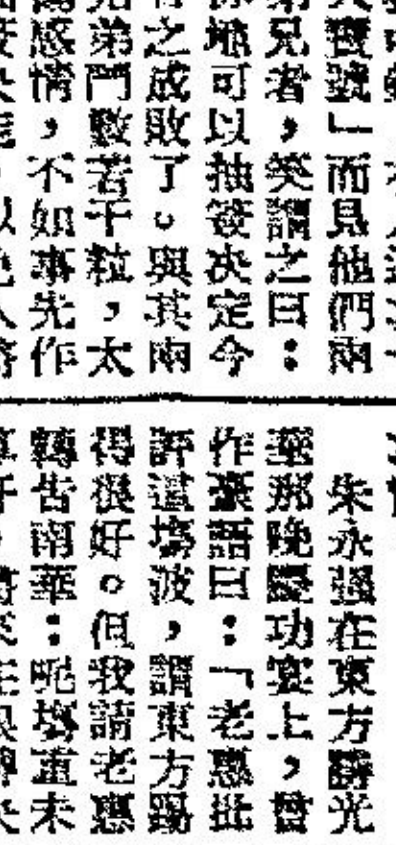 寶號」而見他們兩
兄者，笑謂之曰：
哋可以抽簽決定今
之成敗了。與其兩
弟鬥數若干粒，太
感情，不如事先作
朱永强在東方讌光
華那晚慶功宴上，曾
作豪語曰：「老惠批
評這塲波，謂東方踢
得很好。但我請老惠
轉告南華：呢塲重未